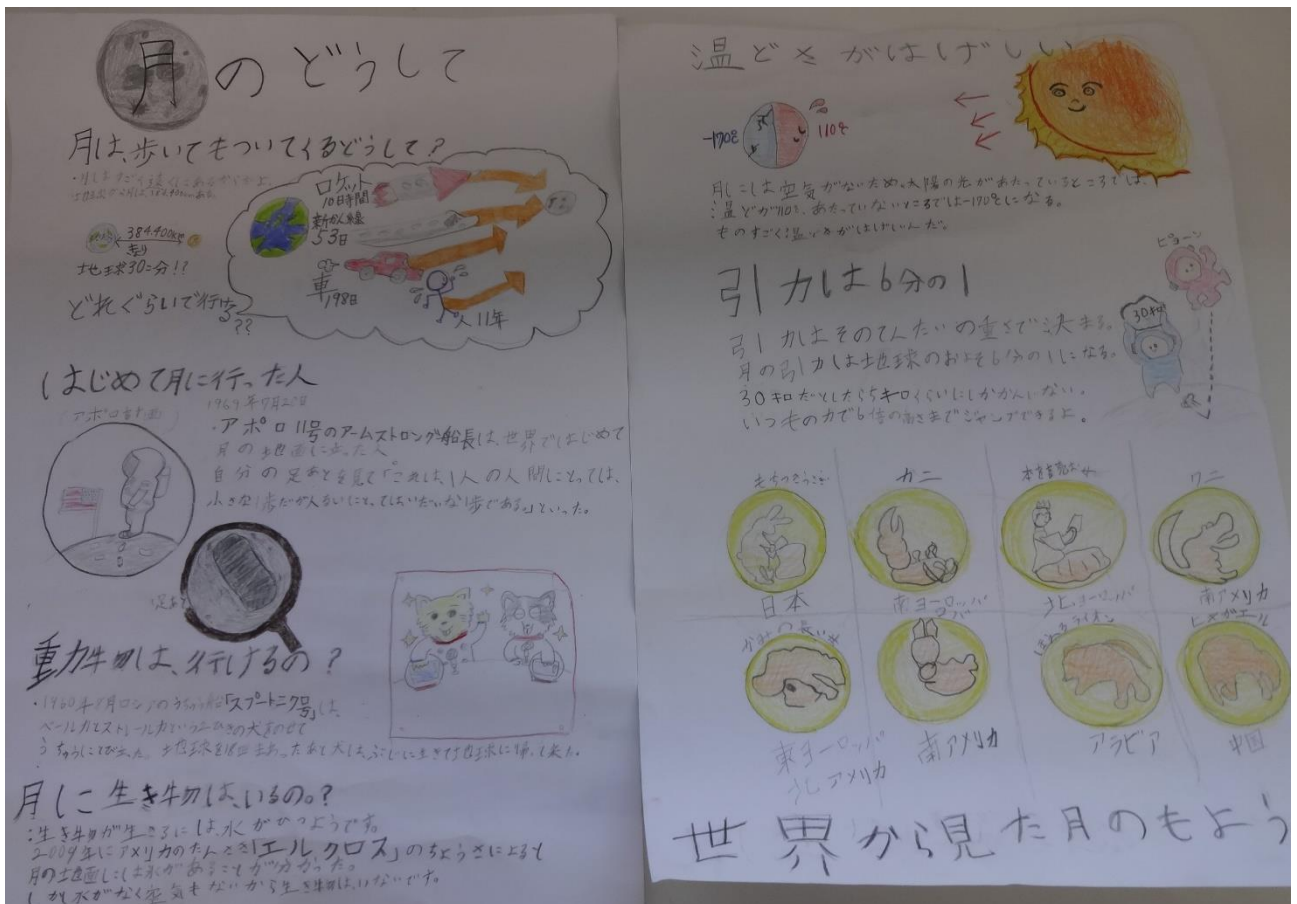 月のどうして
月は、歩いてもついてくるどうして?
・月はすごく遠くにあるからだよ。
384.400km
地球30こ分!?
どれぐらいで行ける
??
ロケット
10日時間
新かん線
53日
車
198日
人11年
はじめて月に行った人
アポロ計画
・アポロ11号のアームストロング船長は、世界ではじめて
月の地面に立った人
自分の足あとを見て「これは、1人の人間にとっては、
小さな1歩だが人るいにとってはいだいな1歩である。」といった。
足あと
動物は、行けるの?
・1960年 月ロシアのうちゅう船「スプートニク号」は、
ベールカとストレールカという2ひきの犬をのせて
うちゅうにとび立った。地球を18回まわったあと犬は、ぶじに生きて地球に帰って来た。
月に生き物は、いるの。?
:生き物が生きるには水がひつようです。
2009年にアメリカのたんさき「エルクロス」のちょうさによると
月の地面には水があることが分かった。
しかし水がなく空気もないから生き物は、いないです。
温どさがはげしい
-170℃
110℃
月には空気がないため、太陽の光があたっているところでは、
温どが110℃、あたっていないところでは-170℃になる。
ものすごく温どさがはげしいんだ。
ピョーン
引力は6分の1
30キロ
引力はそのてんたいの重さで決まる。
月の引力は地球のおよそ6分の1になる。
30キロだとしたら5キロくらいにしかかんじない。
いつもの力で6倍の高さまでジャンプできるよ。
もちつきうさぎ
カニ
本を読むおばあさん
ワニ
日本
南ヨーロッパ
北ヨーロッパ
南アメリカ
かみの長い女
ロバ
ほえるライオン
ヒキガエール
東ヨーロッパ
北アメリカ
南アメリカ
アラビア
中国
世界から見た月のもよう